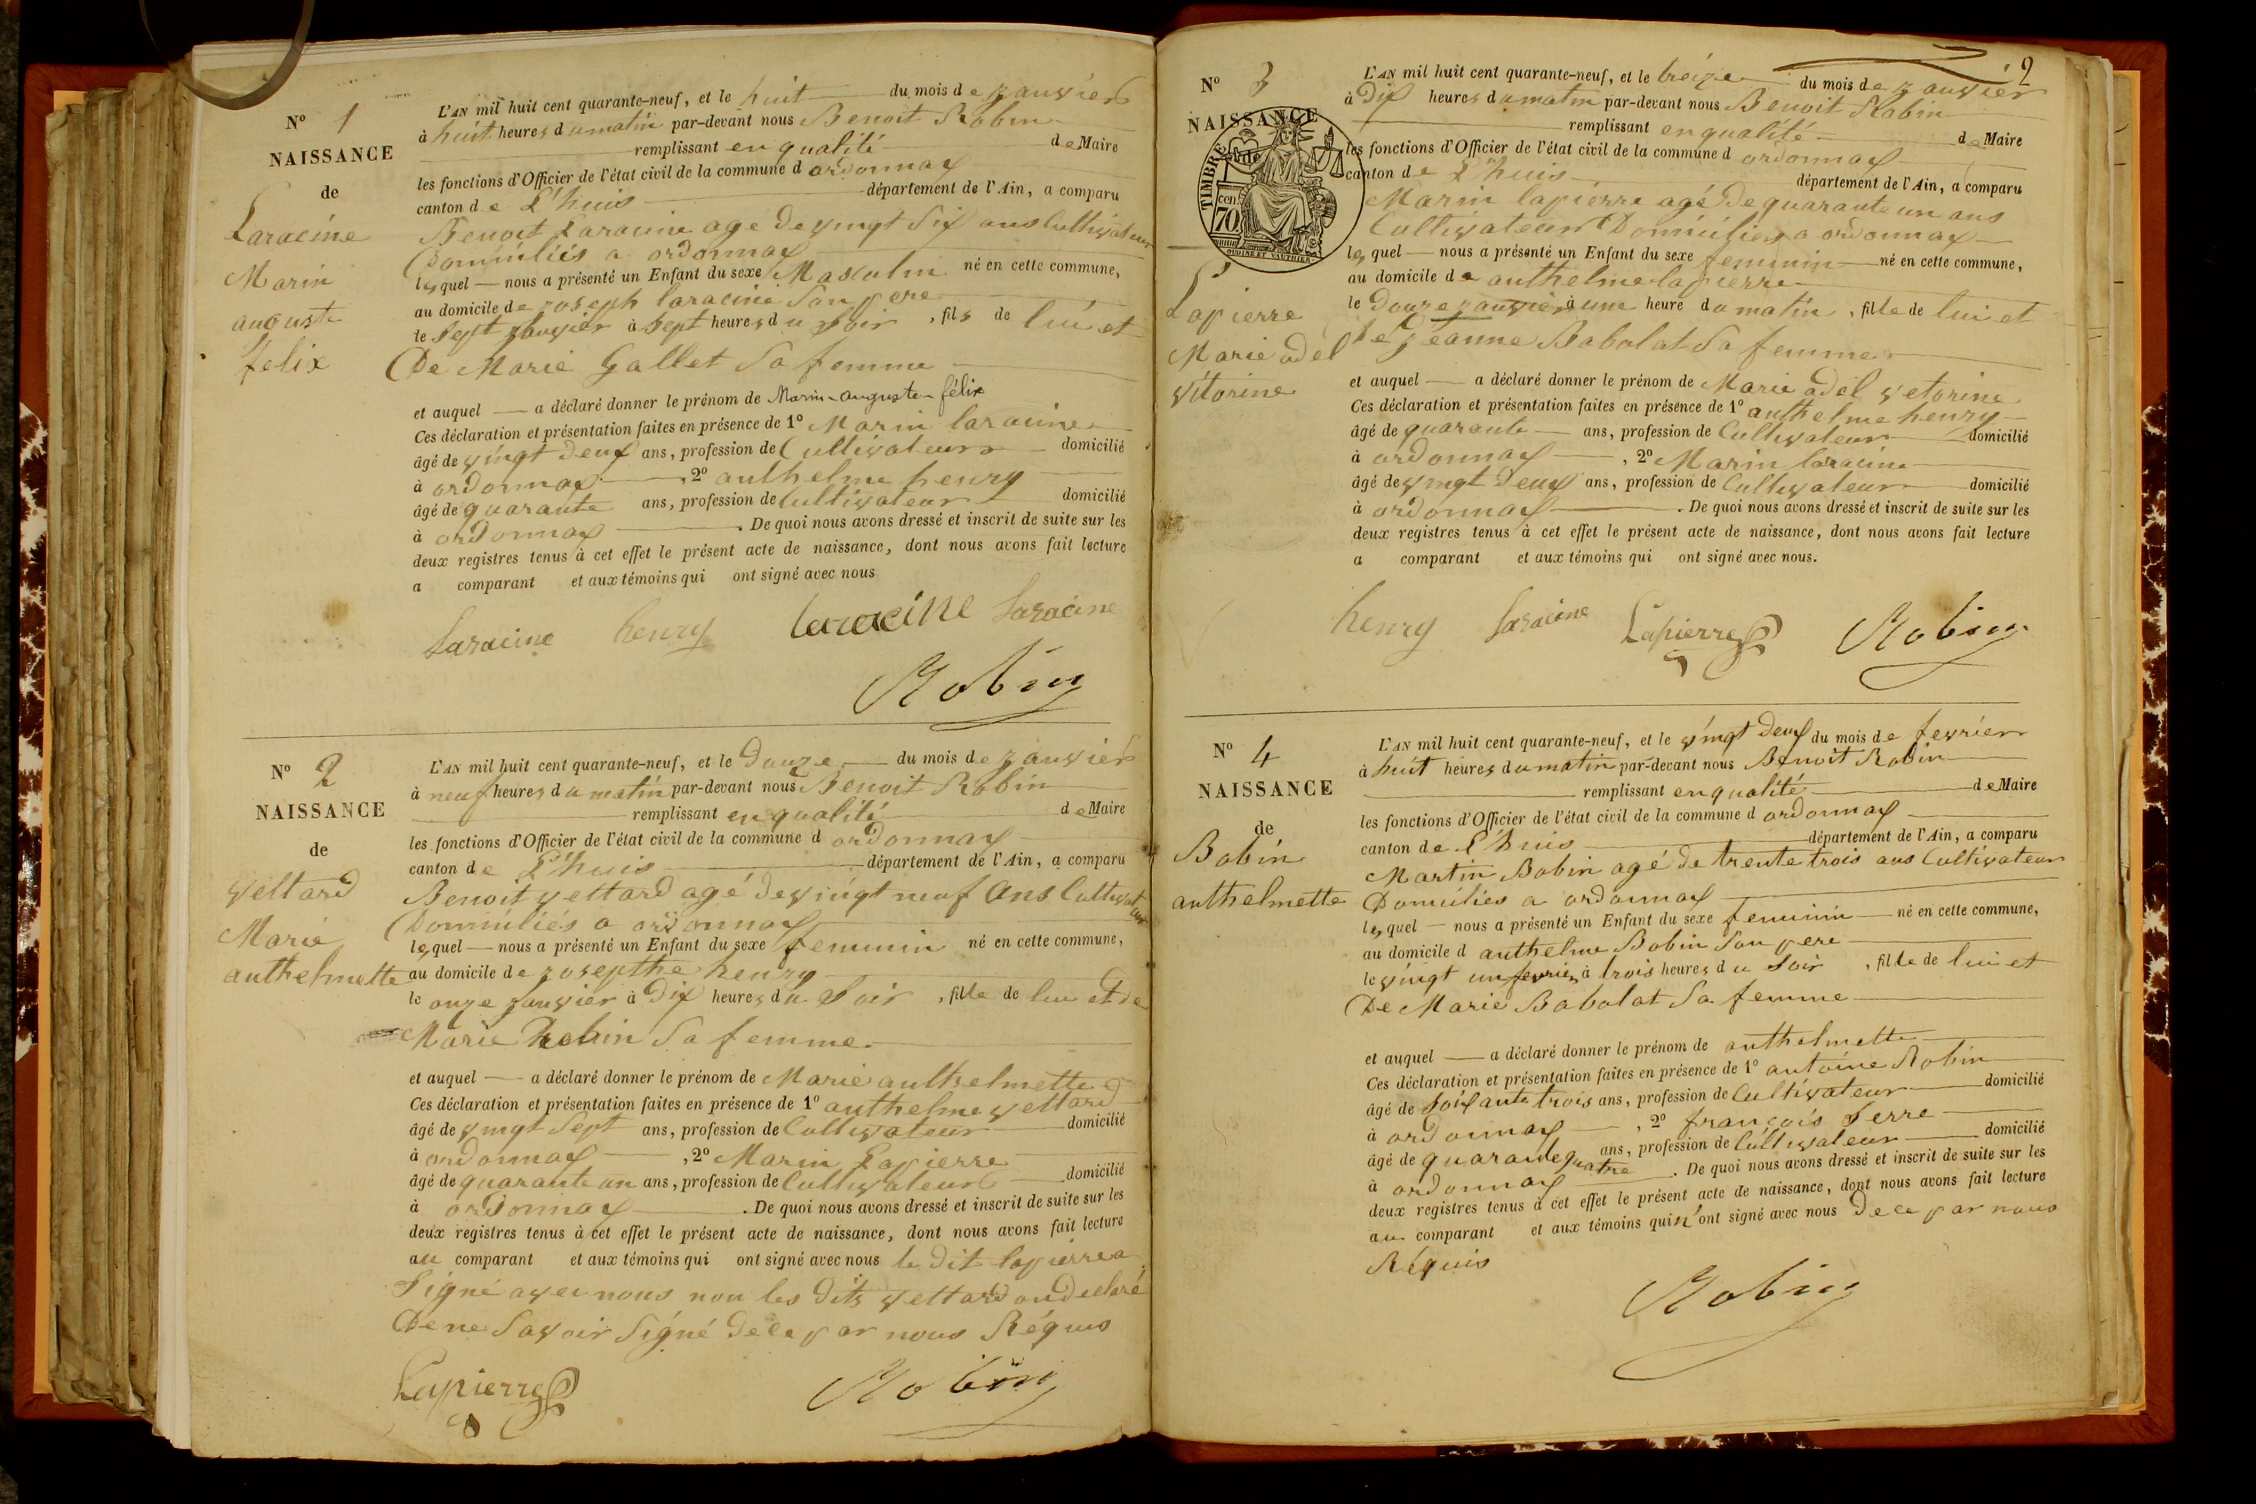 N° 1
NAISSANCE
de
Laracine
Marin
auguste
felix
L'AN mil huit cent quarante-neuf, et le huit du mois de janvier
à huit heures du matin par-devant nous Benoit Robin
remplissant en qualité de Maire
les fonctions d'Officier de l'état civil de la commune d ordonnax
canton de L'huis département de l'Ain, a comparu
Benoit Laracine agé de vingt Six ans Cultivateur
Domiciliés a ordonnax
lequel nous a présenté un Enfant du sexe Masculin né en cette commune,
au domicile de joseph laracine Son pere
le Sept janvier à Sept heures du Soir, fils de lui et
De Marie Gallet Sa femme
et auquel a déclaré donner le prénom de Marin auguste félix
Ces déclaration et présentation faites en présence de 1° Marin laracine
âgé de vingt Deux ans, profession de Cultivateur domicilié
à ordonnax, 2° anthelme henry
âgé de quarante ans, profession de Cultivateur domicilié
à ordonnax. De quoi nous avons dressé et inscrit de suite sur les
deux registres tenus à cet effet le présent acte de naissance, dont nous avons fait lecture
a comparant et aux témoins qui ont signé avec nous
Laracine henry laracine Laracine
Robin
N° 2
NAISSANCE
de
vettard
Marie
anthelmette
L'AN mil huit cent quarante-neuf, et le Douze du mois de janvier
à neuf heures du matin par-devant nous Benoit Robin
remplissant en qualité de Maire
les fonctions d'Officier de l'état civil de la commune d ordonnax
canton de L'huis département de l'Ain, a comparu
Benoit vettard agé de vingt neuf ans Cultivateur
Domiciliés a ordonnax
lequel nous a présenté un Enfant du sexe feminin né en cette commune,
au domicile de josepthe henry
le onze janvier à Dix heures du Soir, fille de lui et de
Marie Robin Sa femme
et auquel a déclaré donner le prénom de Marie anthelmette
Ces déclaration et présentation faites en présence de 1° anthelme vettard
âgé de vingt Sept ans, profession de Cultivateur domicilié
à ordonnax, 2° Marin Lapierre
âgé de quarante un ans, profession de Cultivateur domicilié
à ordonnax. De quoi nous avons dressé et inscrit de suite sur les
deux registres tenus à cet effet le présent acte de naissance, dont nous avons fait lecture
au comparant et aux témoins qui ont signé avec nous le dit lapierre a
Signé avec nous non les Dits vettard on Declaré
De ne Savoir Signé De ce par nous Réquis
Lapierre Robin
2
N° 3
NAISSANCE
TIMBRE
70
Lapierre
Marie adel
vitorine
L'AN mil huit cent quarante-neuf, et le treize du mois de janvier
à Dix heures du matin par-devant nous Benoit Robin
remplissant en qualité de Maire
les fonctions d'Officier de l'état civil de la commune d ordonnax
canton de L'huis département de l'Ain, a comparu
Marin lapierre agé De quarante un ans
Cultivateur Domiciliés a ordonnax
lequel nous a présenté un Enfant du sexe feminin né en cette commune,
au domicile de anthelme lapierre
le Douze janvier à une heure du matin, fille de lui et
De jeanne Babolat Sa femme
et auquel a déclaré donner le prénom de Marie adel vetorine
Ces déclaration et présentation faites en présence de 1° anthelme henry
âgé de quarante ans, profession de Cultivateur domicilié
à ordonnax, 2° Marin laracine
âgé de vingt Deux ans, profession de Cultivateur domicilié
à ordonnax. De quoi nous avons dressé et inscrit de suite sur les
deux registres tenus à cet effet le présent acte de naissance, dont nous avons fait lecture
a comparant et aux témoins qui ont signé avec nous.
henry Laracine Lapierre Robin
N° 4
NAISSANCE
de
Bobin
anthelmette
L'AN mil huit cent quarante-neuf, et le vingt Deux du mois de fevrier
à huit heures du matin par-devant nous Benoit Robin
remplissant en qualité de Maire
les fonctions d'Officier de l'état civil de la commune d ordonnax
canton de L'huis département de l'Ain, a comparu
Martin Bobin agé de trente trois ans Cultivateur
Domiciliés a ordonnax
lequel nous a présenté un Enfant du sexe feminin né en cette commune,
au domicile d anthelme Bobin Son pere
le vingt un fevrier à trois heures du Soir, fille de lui et
De Marie Babolat Sa femme
et auquel a déclaré donner le prénom de anthelmette
Ces déclaration et présentation faites en présence de 1° antoine Robin
âgé de Soixante trois ans, profession de Cultivateur domicilié
à ordonnax, 2° françois Serre
âgé de quarante quatre ans, profession de Cultivateur domicilié
à ordonnax. De quoi nous avons dressé et inscrit de suite sur les
deux registres tenus à cet effet le présent acte de naissance, dont nous avons fait lecture
au comparant et aux témoins qui n'ont signé avec nous De ce par nous
Réquis
Robin